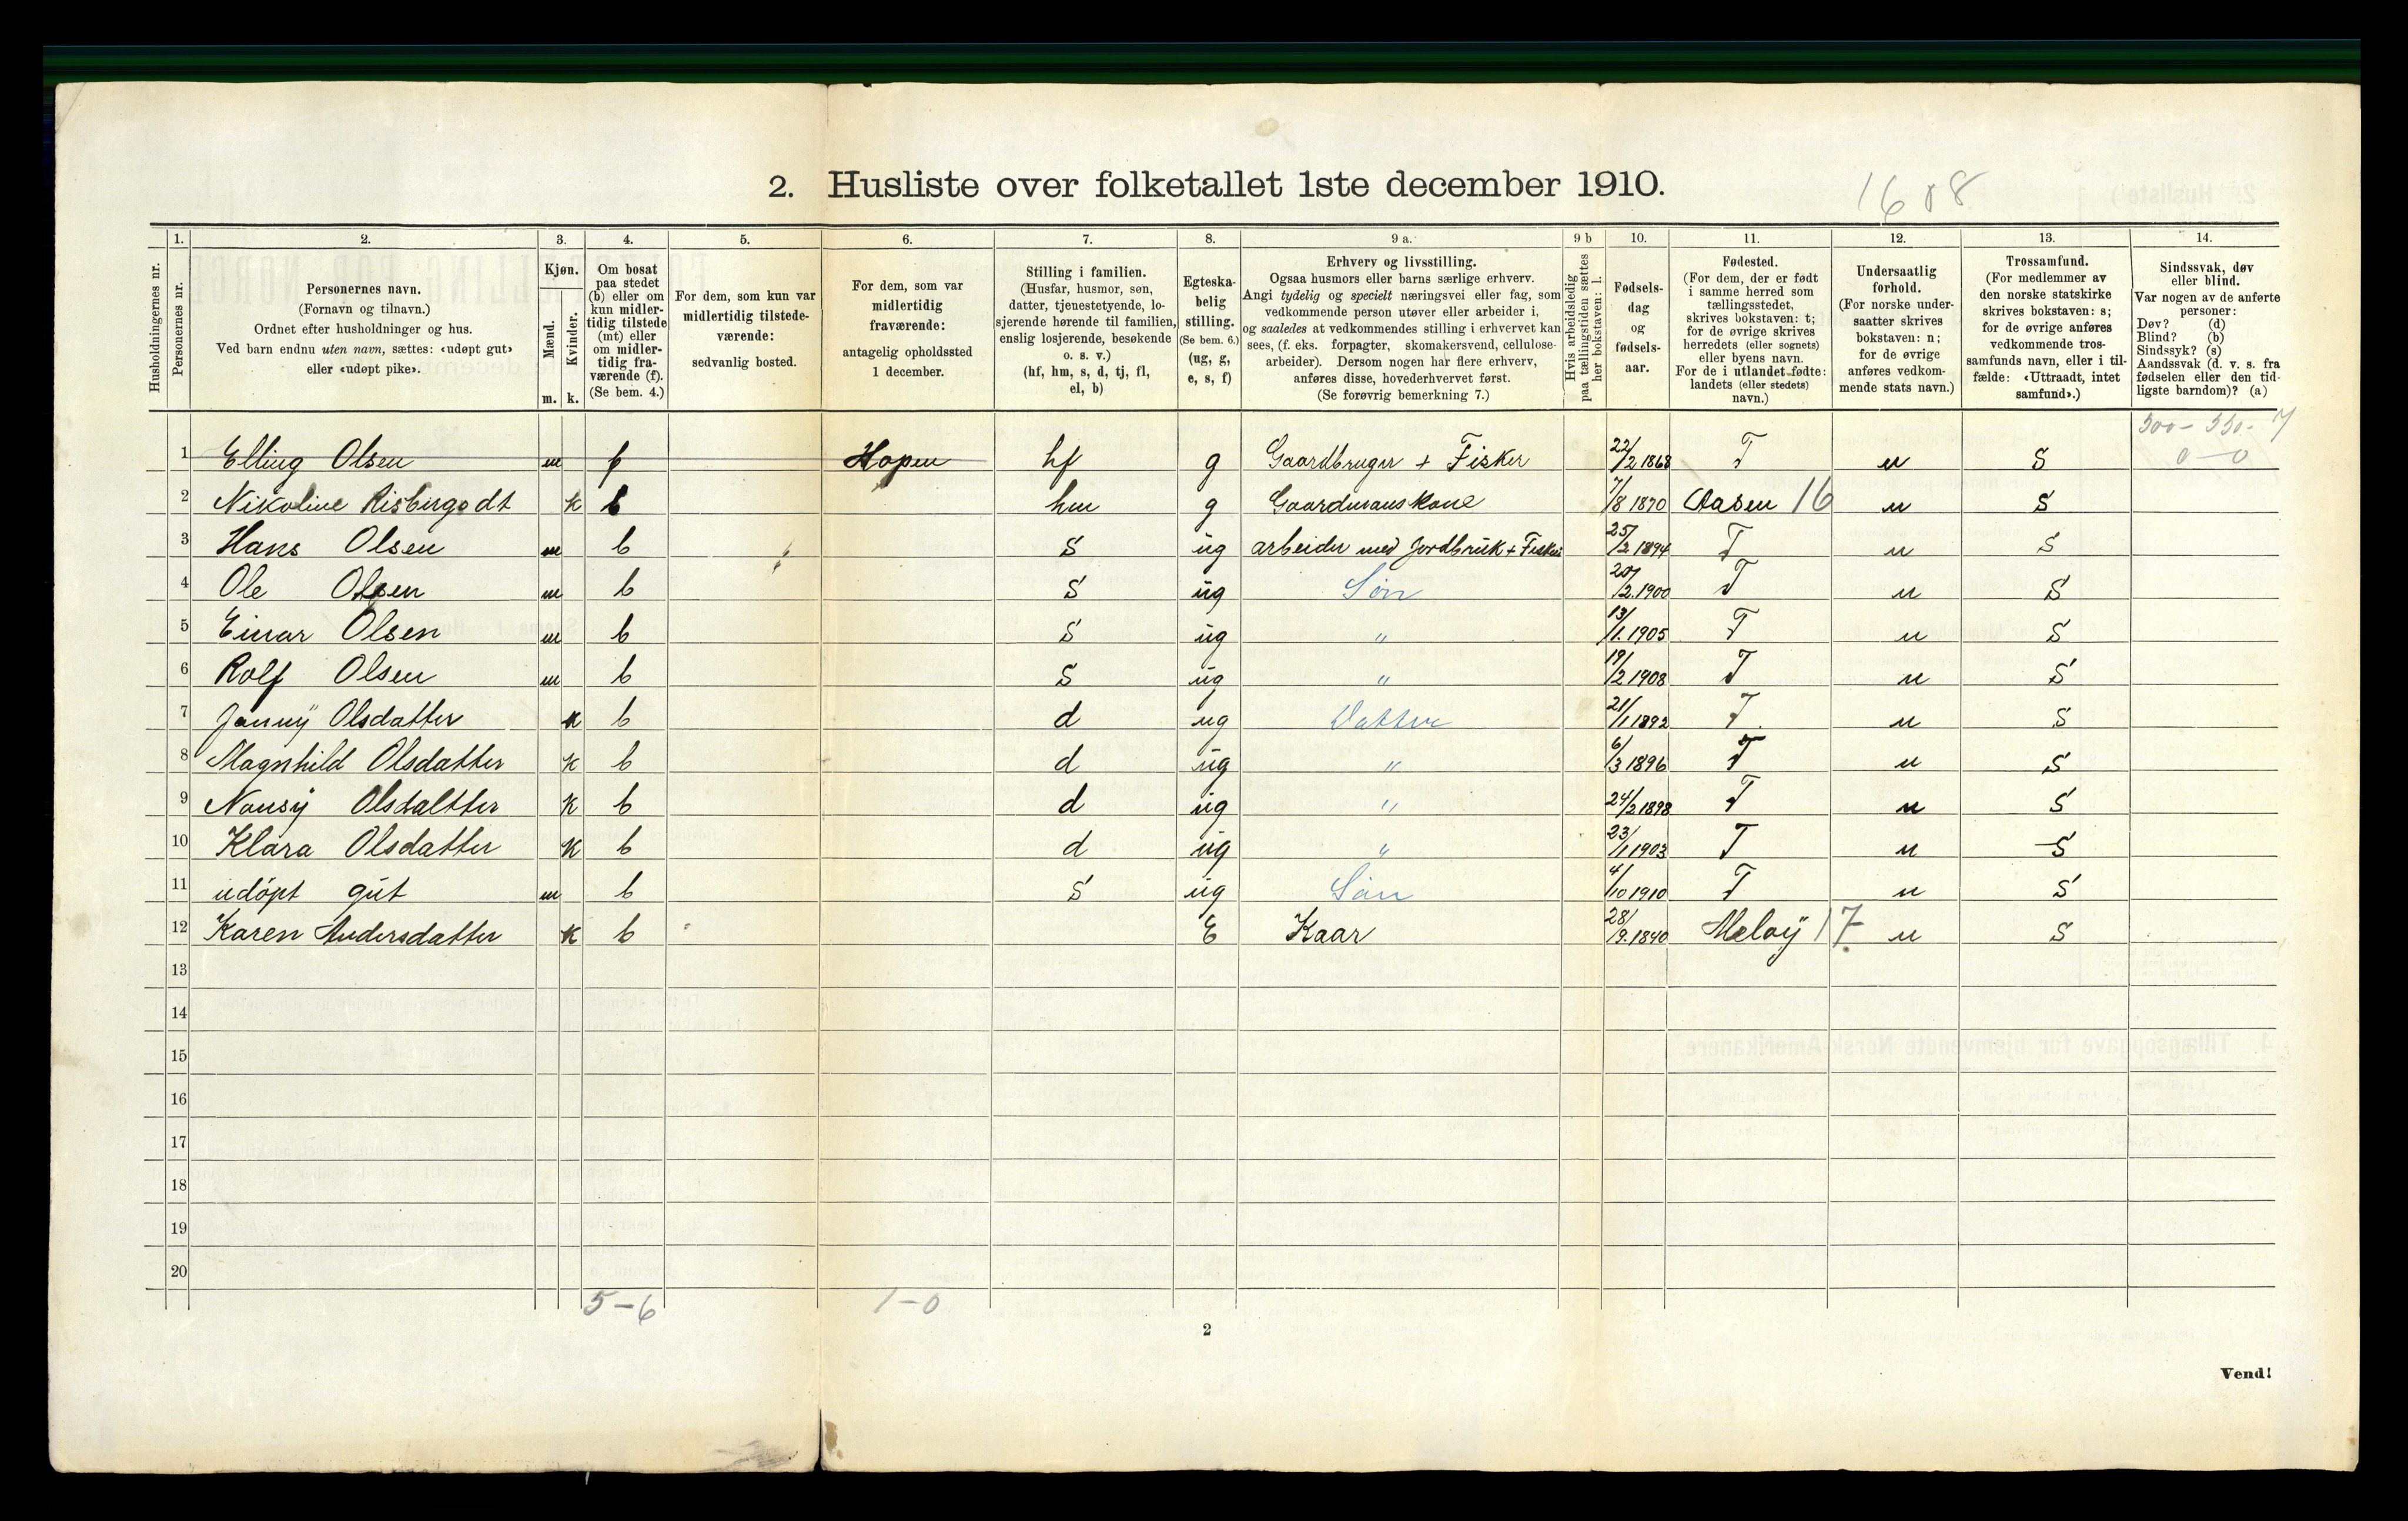 2. Husliste over folketallet 1ste december 1910.
1608
1. 2. 3. 4. 5. 6. 7. 8. 9 a. 9 b 10. 11. 12. 13. 14.
Husholdningernes nr.
Personernes nr.
Personernes navn.
(Fornavn og tilnavn.)
Ordnet efter husholdninger og hus.
Ved barn endnu uten navn, sættes: «udøpt gut»
eller «udøpt pike».
Kjøn.
Mænd.
Kvinder.
m. k.
Om bosat
paa stedet
(b) eller om
kun midler-
tidig tilstede
(mt) eller
om midler-
tidig fra-
værende (f).
(Se bem. 4.)
For dem, som kun var
midlertidig tilstede-
værende:
sedvanlig bosted.
For dem, som var
midlertidig
fraværende:
antagelig opholdssted
1 december.
Stilling i familien.
(Husfar, husmor, søn,
datter, tjenestetyende, lo-
sjerende hørende til familien,
enslig losjerende, besøkende
o. s. v.)
(hf, hm, s, d, tj, fl,
el, b)
Egteska-
belig
stilling.
(Se bem. 6.)
(ug, g,
e, s, f)
Erhverv og livsstilling.
Ogsaa husmors eller barns særlige erhverv.
Angi tydelig og specielt næringsvei eller fag, som
vedkommende person utøver eller arbeider i,
og saaledes at vedkommendes stilling i erhvervet kan
sees, (f. eks. forpagter, skomakersvend, cellulose-
arbeider). Dersom nogen har flere erhverv,
anføres disse, hovederhvervet først.
(Se forøvrig bemerkning 7.)
Hvis arbeidsledig
paa tællingstiden sættes
her bokstaven: l.
Fødsels-
dag
og
fødsels-
aar.
Fødested.
(For dem, der er født
i samme herred som
tællingsstedet,
skrives bokstaven: t;
for de øvrige skrives
herredets (eller sognets)
eller byens navn.
For de i utlandet fødte:
landets (eller stedets)
navn.)
Undersaatlig
forhold.
(For norske under-
saatter skrives
bokstaven: n;
for de øvrige
anføres vedkom-
mende stats navn.)
Trossamfund.
(For medlemmer av
den norske statskirke
skrives bokstaven: s;
for de øvrige anføres
vedkommende tros-
samfunds navn, eller i til-
fælde: «Uttraadt, intet
samfund».)
Sindssvak, døv
eller blind.
Var nogen av de anførte
personer:
Døv? (d)
Blind? (b)
Sindssyk? (s)
Aandssvak (d. v. s. fra
fødselen eller den tid-
ligste barndom)? (a)
0-0
1 Elling Olsen m f Hopen hf g Gaardbruger + Fisker 22/2 1868 T n S
2 Nikoline Risbirgsdt k b hm g Gaardmanskone 7/8 1870 Aasen 16 n S
3 Hans Olsen m b S ug arbeider med Jordbruk + Fiskeri 25/2 1894 T n S
4 Ole Olsen m b S ug Søn 20/2 1900 T n S
5 Einar Olsen m b S ug " 13/1 1905 T n S
6 Rolf Olsen m b S ug " 19/2 1908 T n S
7 Jenny Olsdatter k b d ug Datter 21/1 1892 T n S
8 Magnhild Olsdatter k b d ug " 6/3 1896 T n S
9 Nansy Olsdaltter k b d ug " 24/2 1898 T n S
10 Klara Olsdatter k b d ug " 23/1 1903 T n S
11 udøpt gut m b S ug Søn 4/10 1910 T n S
12 Karen Andersdatter k b E Kaar 28/9 1840 Meløy 17 n S
13
14
15
16
17
18
19
20
5-6 1-0
2
Vend!